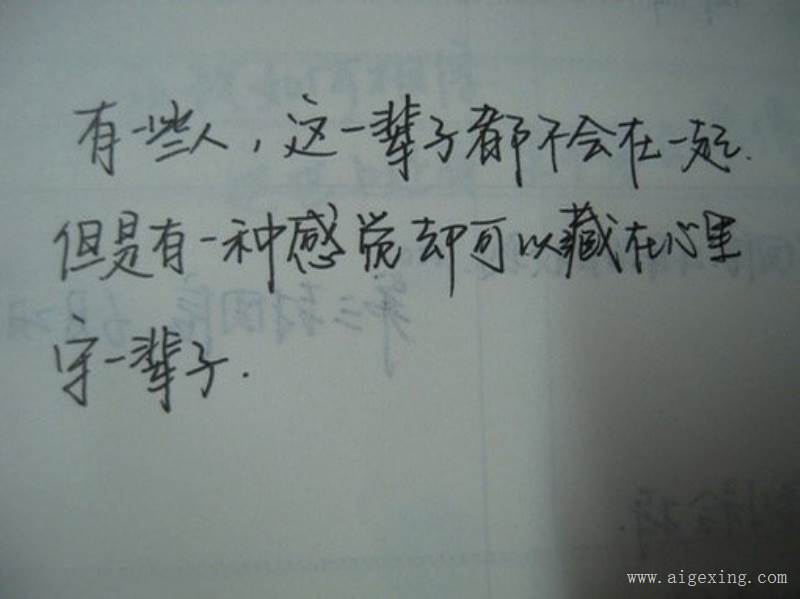 有一些人，这一辈子都不会在一起.
但是有一种感觉却可以藏在心里
守一辈子.
www.aigexing.com